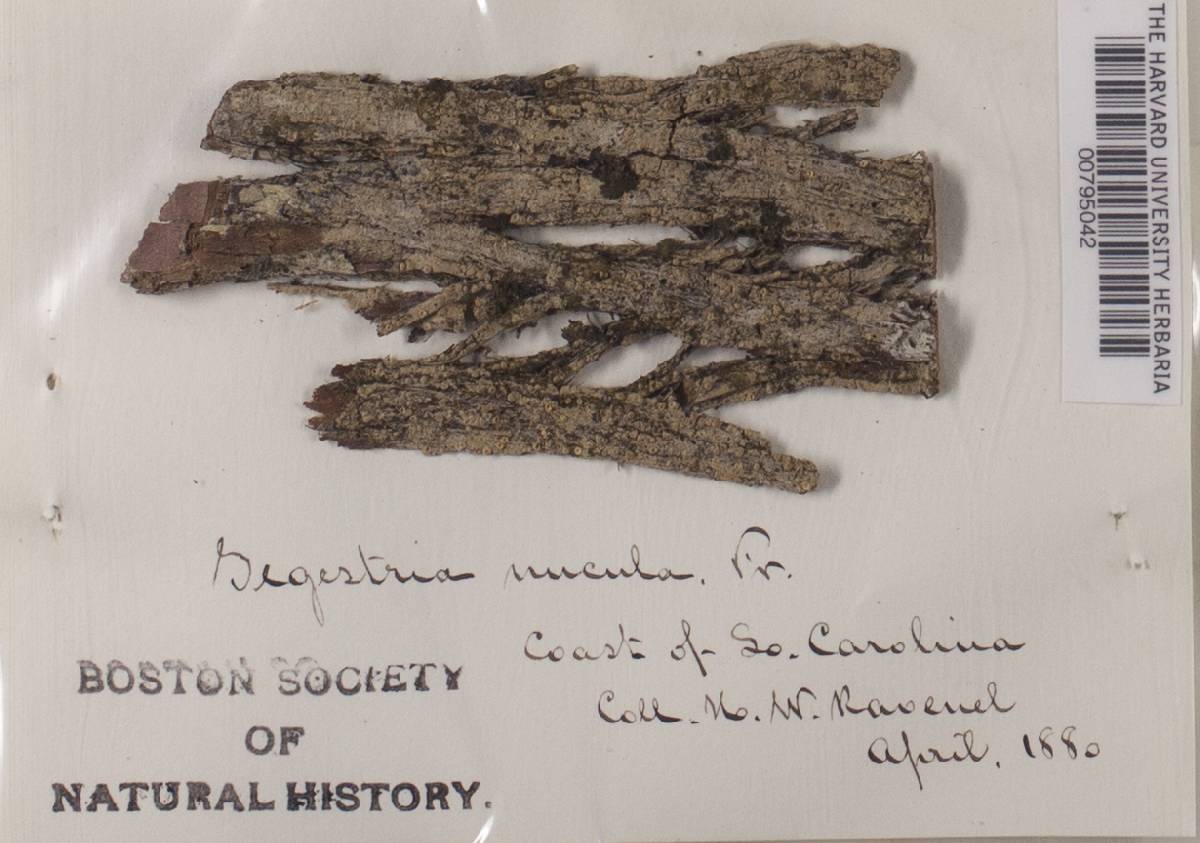 THE HARVARD UNIVERSITY HERBARIA
00795042
Segestria nucula. Fr.
Coast of So. Carolina
Coll. H. W. Ravenel
April, 1880
BOSTON SOCIETY
OF
NATURAL HISTORY.